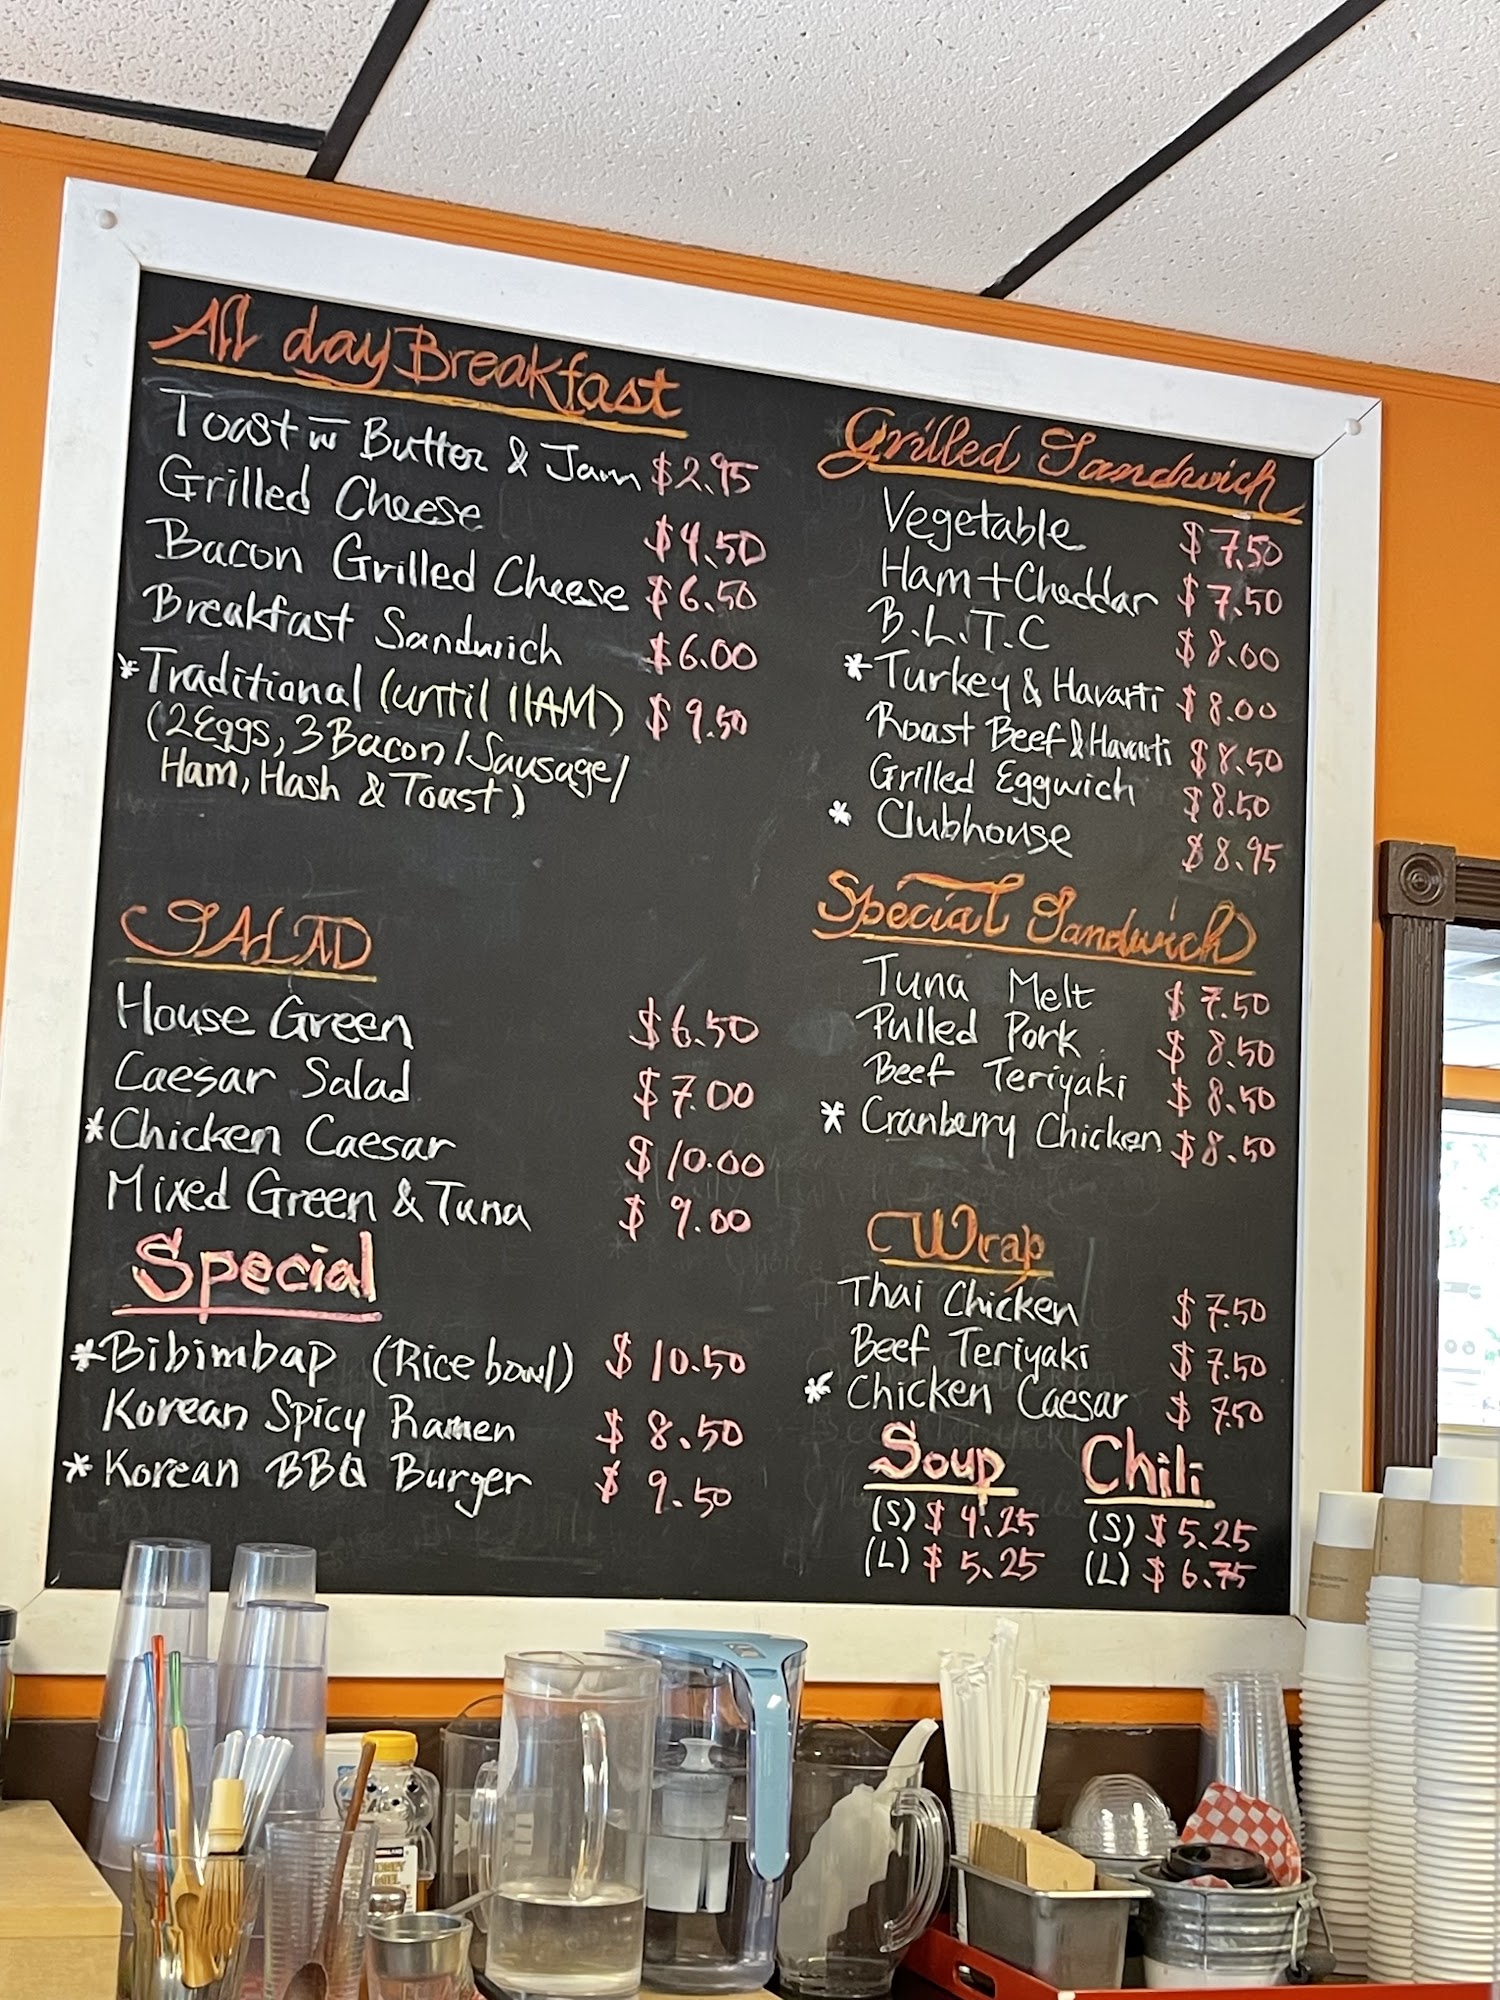 All day Breakfast
Toast w Butter & Jam $2.95
Grilled Cheese $4.50
Bacon Grilled Cheese $6.50
Breakfast Sandwich $6.00
*Traditional (until 11AM) $9.50
(2 Eggs, 3 Bacon/Sausage/
Ham, Hash & Toast)
SALAD
House Green $6.50
Caesar Salad $7.00
*Chicken Caesar $10.00
Mixed Green & Tuna $9.00
Special
*Bibimbap (Rice bowl) $10.50
Korean Spicy Ramen $8.50
*Korean BBQ Burger $9.50
Grilled Sandwich
Vegetable $7.50
Ham + Cheddar $7.50
B.L.T.C $8.00
*Turkey & Havarti $8.00
Roast Beef & Havarti $8.50
Grilled Eggwich $8.50
* Clubhouse $8.95
Special Sandwich
Tuna Melt $7.50
Pulled Pork $8.50
Beef Teriyaki $8.50
* Cranberry Chicken $8.50
Wrap
Thai Chicken $7.50
Beef Teriyaki $7.50
* Chicken Caesar $7.50
Soup
(S) $4.25
(L) $5.25
Chili
(S) $5.25
(L) $6.75